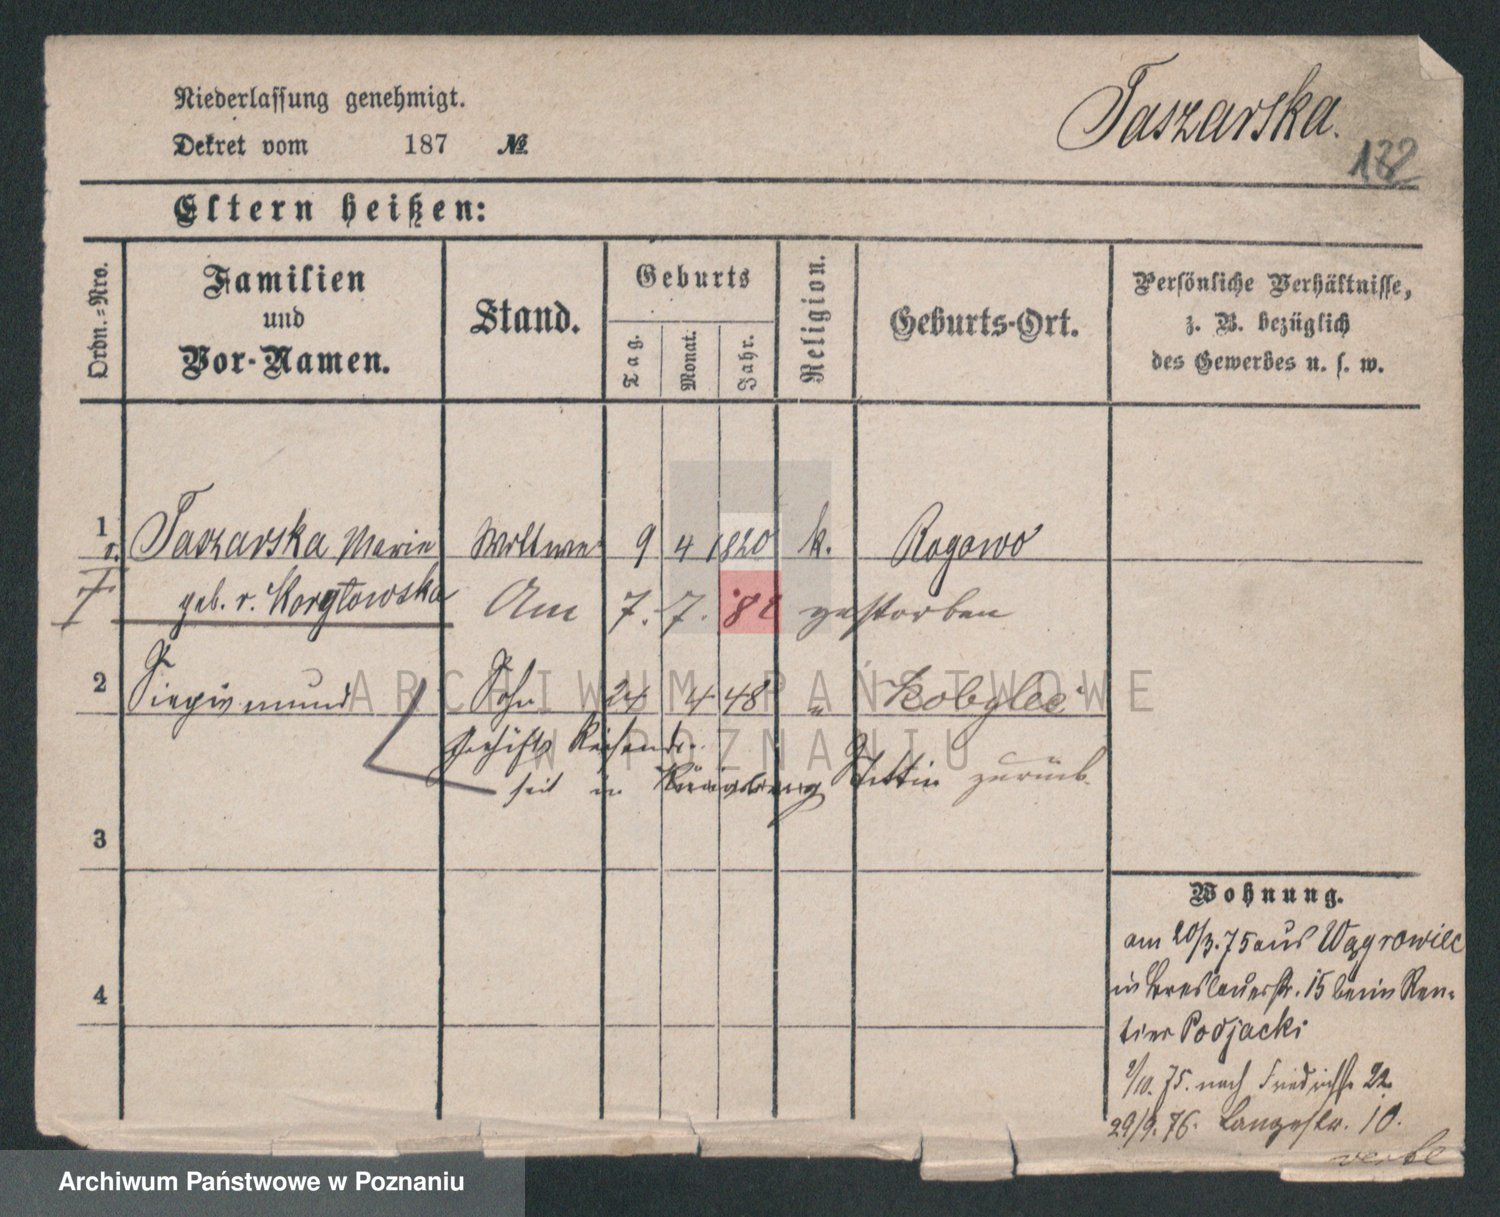 Niederlassung genehmigt.
Dekret vom 187 №
Taszarska.
132
Eltern heißen:
Ordn.-Nro.
Familien
und
Vor-Namen.
Stand.
Geburts
Tag.
Monat.
Jahr.
Religion.
Geburts-Ort.
Persönliche Verhältnisse,
z. B. bezüglich
des Gewerbes u. s. w.
1 Taszarska Marie Wittwe 9 4 1820 k. Rogowo
geb. v. Korytowska Am 7. 7. gestorben
2 Siegismund Sohn 24 4 48 " Kobylec
Geschäfts Reisender
seit in Königsberg Stettin zurück
3
4
Wohnung.
am 20/3. 75 aus Wągrowiec
in Breslauerstr. 15 beim Ren-
tier Podjacki
2/10. 75. nach Friedrichstr 22.
29/9. 76. Langestr. 10.
ARCHIWUM PAŃSTWOWE
W POZNANIU
Archiwum Państwowe w Poznaniu